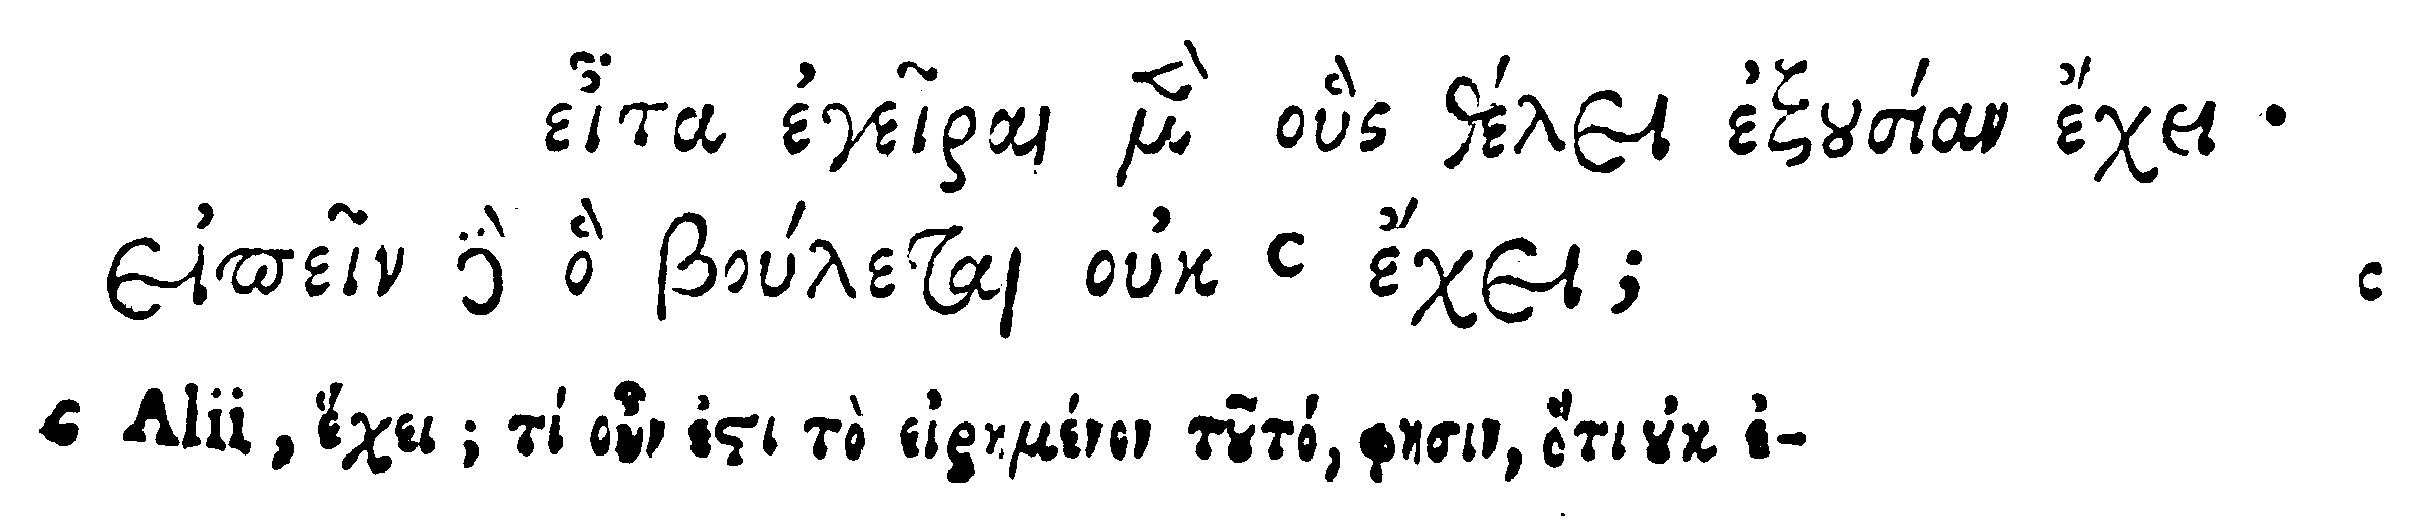 εἶτα ἐγεῖραι μὲν οὓς θέλει ἐξουσίαν ἔχει ·
εἰπεῖν δὲ ὃ βούλεται οὐκ c ἔχει ; c
c Alii, ἔχει ; τί οὖν ἐστι τὸ εἰρημένον τοῦτό, φησιν, ὅτι οὐκ ἐ-